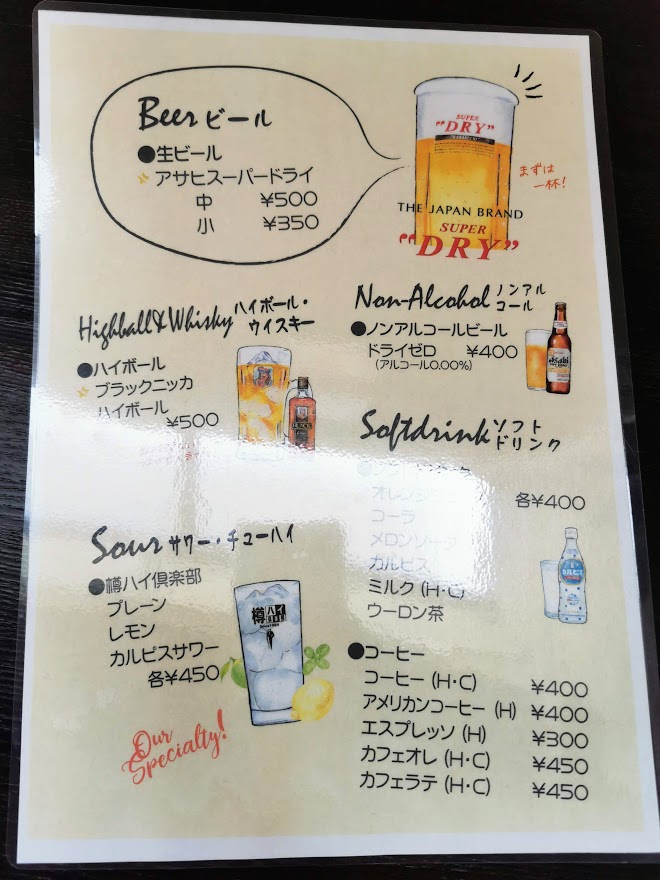 Beer ビール
●生ビール
アサヒスーパードライ
中 ¥500
小 ¥350
SUPER
"DRY"
まずは
一杯!
THE JAPAN BRAND
SUPER
"DRY"
Highball&Whisky ハイボール・
ウイスキー
●ハイボール
ブラックニッカ
ハイボール
¥500
Non-Alcohol ノンアル
コール
●ノンアルコールビール
ドライゼロ ¥400
(アルコール0.00%)
Asahi
Softdrink ソフト
ドリンク
各¥400
コーラ
メロンソーダ
カルピス
ミルク (H・C)
ウーロン茶
Sour サワー・チューハイ
●樽ハイ倶楽部
プレーン
レモン
カルピスサワー
各¥450
樽ハイ
Our
Specialty!
●コーヒー
コーヒー (H・C) ¥400
アメリカンコーヒー (H) ¥400
エスプレッソ (H) ¥300
カフェオレ (H・C) ¥450
カフェラテ (H・C) ¥450